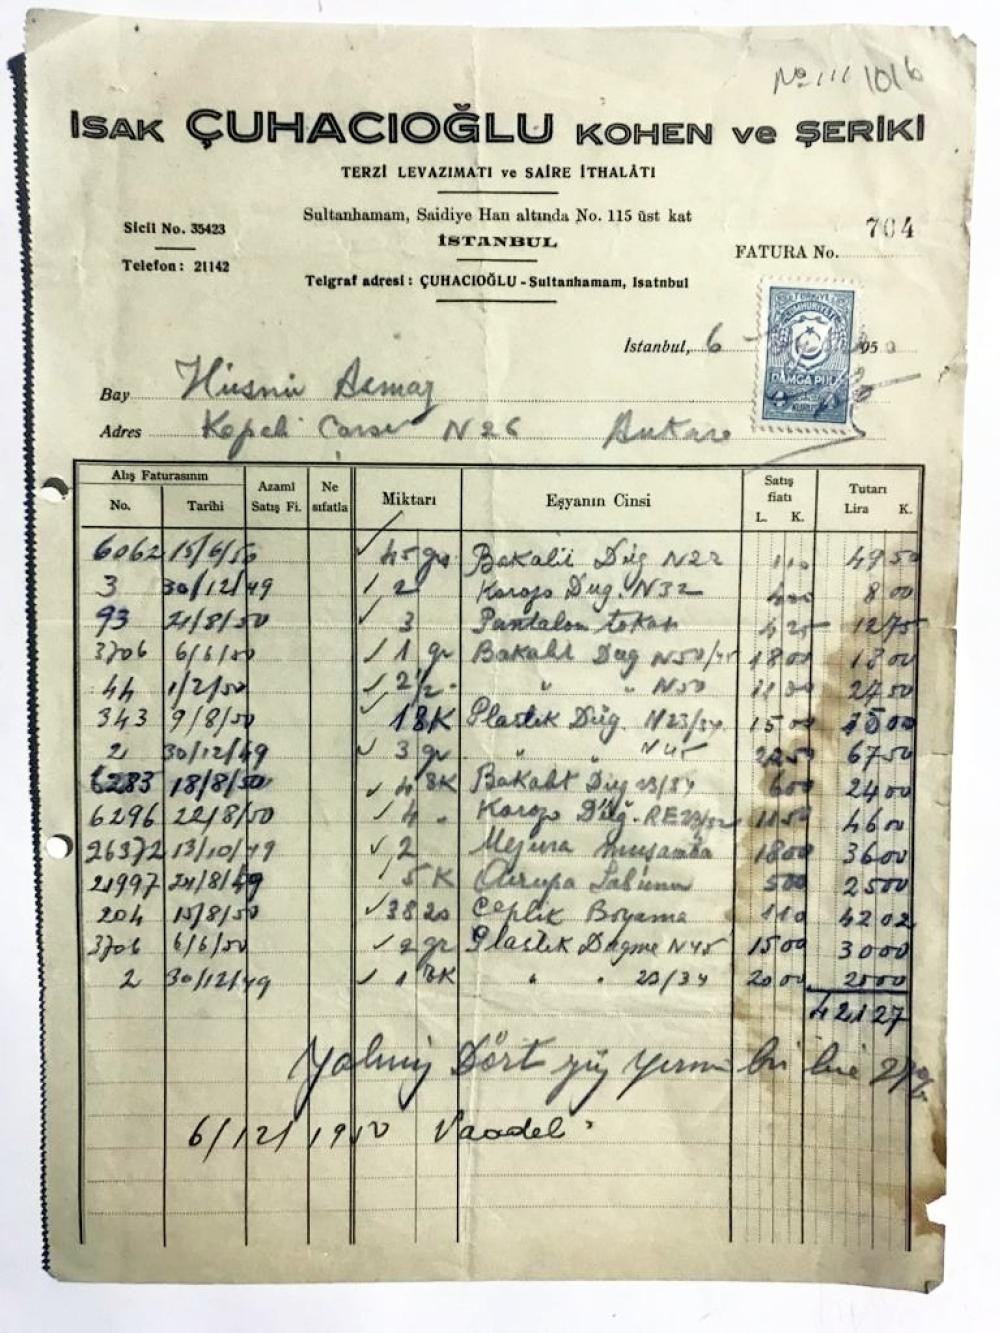 No 111 1016
ISAK ÇUHACIOĞLU KOHEN ve ŞERİKİ
TERZİ LEVAZIMATI ve SAİRE İTHALÂTI
Sultanhamam, Saidiye Han altında No. 115 üst kat
İSTANBUL
Sicil No. 35423
Telefon: 21142
Telgraf adresi: ÇUHACIOĞLU - Sultanhamam, Isatnbul
FATURA No. 704
TÜRKİYE CUMHURİYETİ
DAMGA PULU
KURUŞ
İstanbul, 6 950
Bay Hüsnü Asmaz
Adres Kepeli Çarşı N 26 Ankara
Alış Faturasının No. Tarihi Azamî Satış Fi. Ne sıfatla Miktarı Eşyanın Cinsi Satış fiatı L. K. Tutarı Lira K.
6062 15/6/50 45 gr Bakalit Düğ N22 110 49 50
3 30/12/49 2 Korozo Düg. N32 400 8 00
93 21/8/50 3 Pantalon tokası 425 12 75
3706 6/6/50 1 gr Bakalit Düg N50/45 18 00 18 00
44 1/2/50 2 1/2 " " N50 11 00 27 50
343 9/8/50 1 BK Plastik Düğ. N23/34 15 00 15 00
2 30/12/49 3 gr " " N45 22 50 67 50
6283 18/8/50 4 BK Bakalit Düğ 23/34 600 24 00
6296 22/8/50 4 " Korozo Düğ. 11 50 46 00
26372 13/10/49 2 Mezura muşamba 18 00 36 00
21997 24/8/49 5 K Avrupa Sabunu 500 25 00
204 15/8/50 38 20 Ceplik Boyama 110 42 02
3706 6/6/50 2 gr Plastik Düğme N45 15 00 30 00
2 30/12/49 1 BK " " 23/34 20 00 20 00
421 27
Yalnız Dört yüz yirmi bir lira 27
6/12/1950 Vaadeli